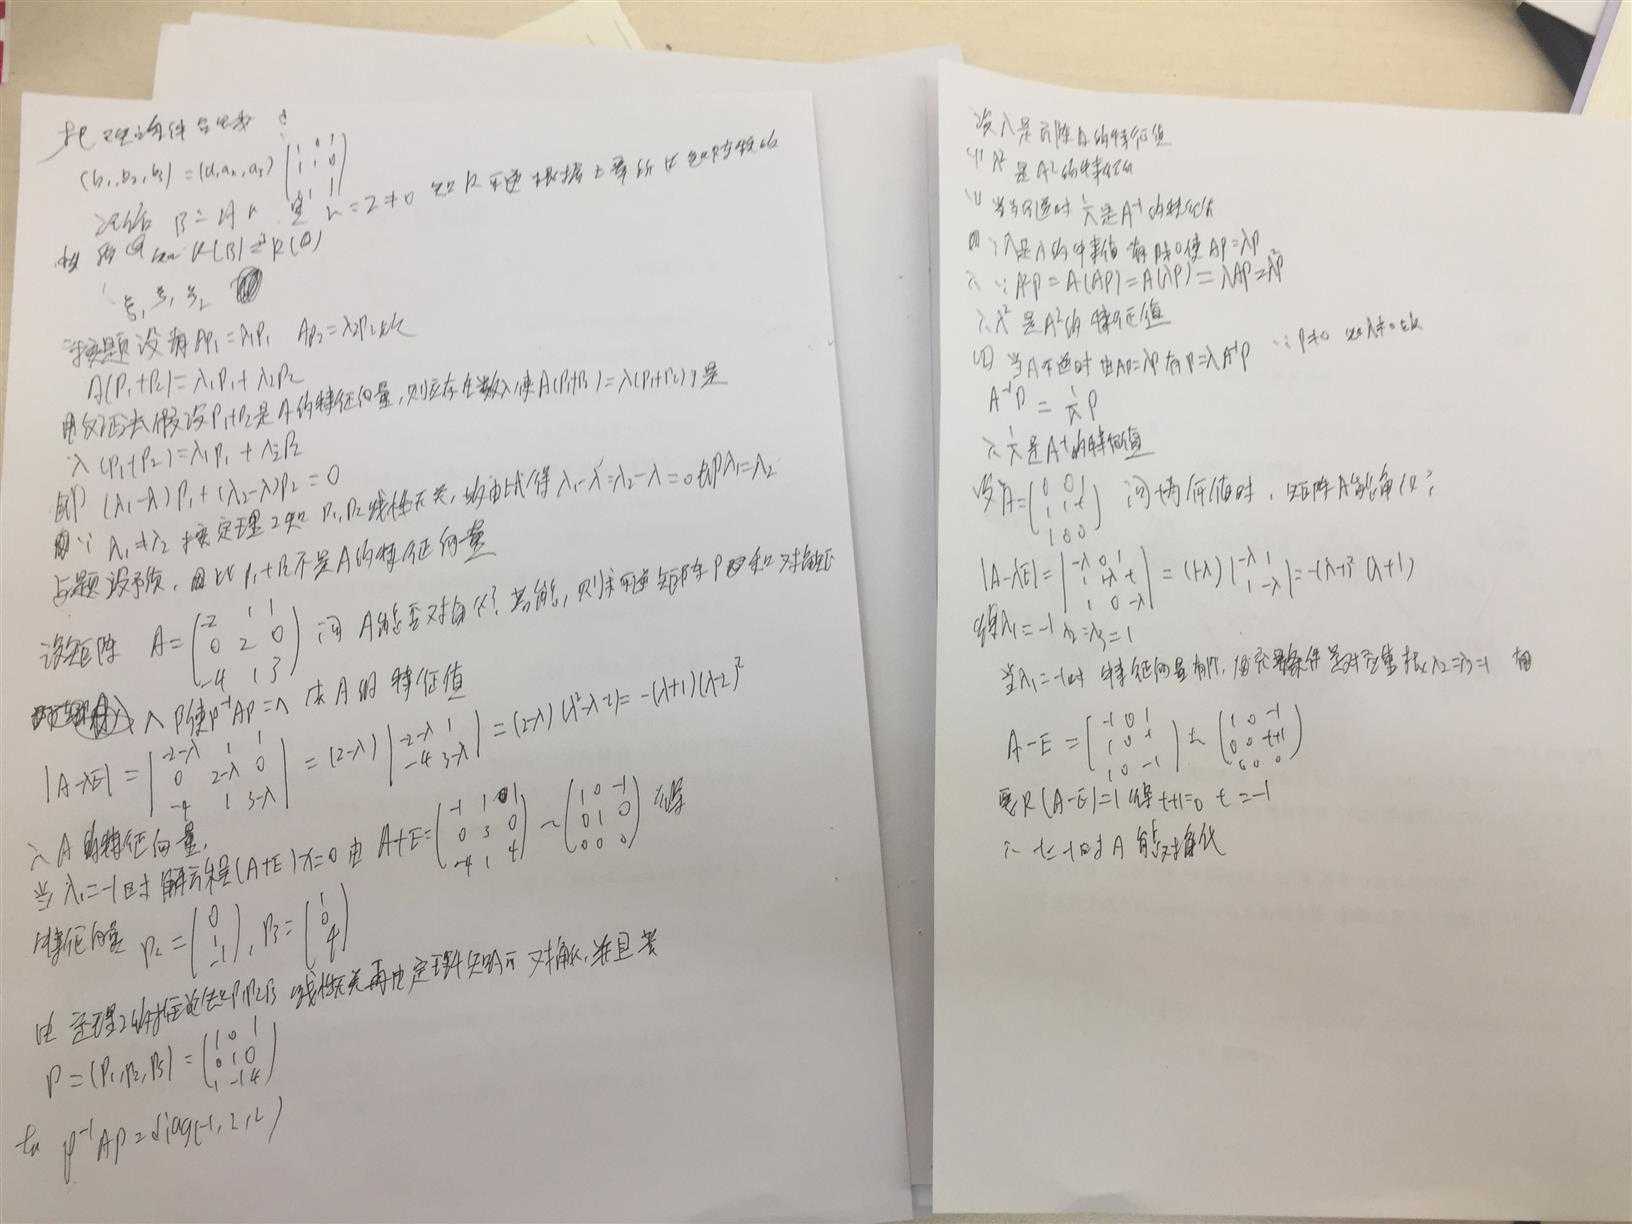 把已知条件合写成
(b₁,b₂,b₃) = (a₁,a₂,a₃) (1 0 1
1 1 0
0 1 1)
记为 B = AK |K| = 2≠0 知 K 可逆 根据上章
R(B) = R(A)
ξ, ξ₁ ξ₂
按题设有 AP₁=λ₁P₁ AP₂=λ₂P₂ 故
A(P₁+P₂)=λ₁P₁+λ₂P₂
用反证法 假设P₁+P₂是A的特征向量,则应存在数λ使A(P₁+P₂)=λ(P₁+P₂)于是
λ(P₁+P₂)=λ₁P₁+λ₂P₂
即 (λ₁-λ)P₁+(λ₂-λ)P₂=0
∵ λ₁≠λ₂ 按定理2知 P₁,P₂线性无关,故由上式得 λ₁-λ=λ₂-λ=0 即λ₁=λ₂
与题设矛盾,因此P₁+P₂不是A的特征向量
设矩阵 A = (-2 1 1
0 2 0
-4 1 3) 问A能否对角化?若能,则求可逆矩阵P和对角矩阵
λ P使P⁻¹AP=Λ 求A的特征值
|A-λE| = |-2-λ 1 1
0 2-λ 0
-4 1 3-λ| = (2-λ) |-2-λ 1
-4 3-λ| = (2-λ)(λ²-λ-2) = -(λ+1)(λ-2)²
λ A的特征向量,
当λ₁=-1时 解方程(A+E)x=0 由 A+E = (-1 1 1
0 3 0
-4 1 4) ~ (1 0 -1
0 1 0
0 0 0) 得
特征向量 P₂ = (0
1
-1), P₃ = (1
0
4)
由定理2的推论知P₁P₂P₃线性无关再由定理4知A可对角化,并且若
P = (P₁,P₂,P₃) = (1 0 1
0 1 0
1 -1 4)
P⁻¹AP = diag(-1,2,2)
设λ是方阵A的特征值
(1) λ² 是A²的特征值
(2) 当A可逆时 1/λ是A⁻¹的特征值
∵λ是A的特征值 有P≠0使AP=λP
∴ A²P=A(AP)=A(λP)=λAP=λ²P
∴λ² 是A²的特征值
当A可逆时 由AP=λP 有P=λA⁻¹P ∵P≠0 知λ≠0 故
A⁻¹P = 1/λ P
∴ 1/λ是A⁻¹的特征值
设A = (0 0 1
1 1 t
1 0 0) 问t为何值时,矩阵A能对角化?
|A-λE| = |-λ 0 1
1 1-λ t
1 0 -λ| = (1-λ) |-λ 1
1 -λ| = -(λ-1)²(λ+1)
得λ₁=-1 λ₂=λ₃=1
当λ₁=-1时 特征向量 条件是对应重根λ₂=λ₃=1
A-E = (-1 0 1
1 0 t
1 0 -1) ~ (1 0 -1
0 0 t+1
0 0 0)
要R(A-E)=1 得t+1=0 t=-1
∴ t=-1时A能对角化